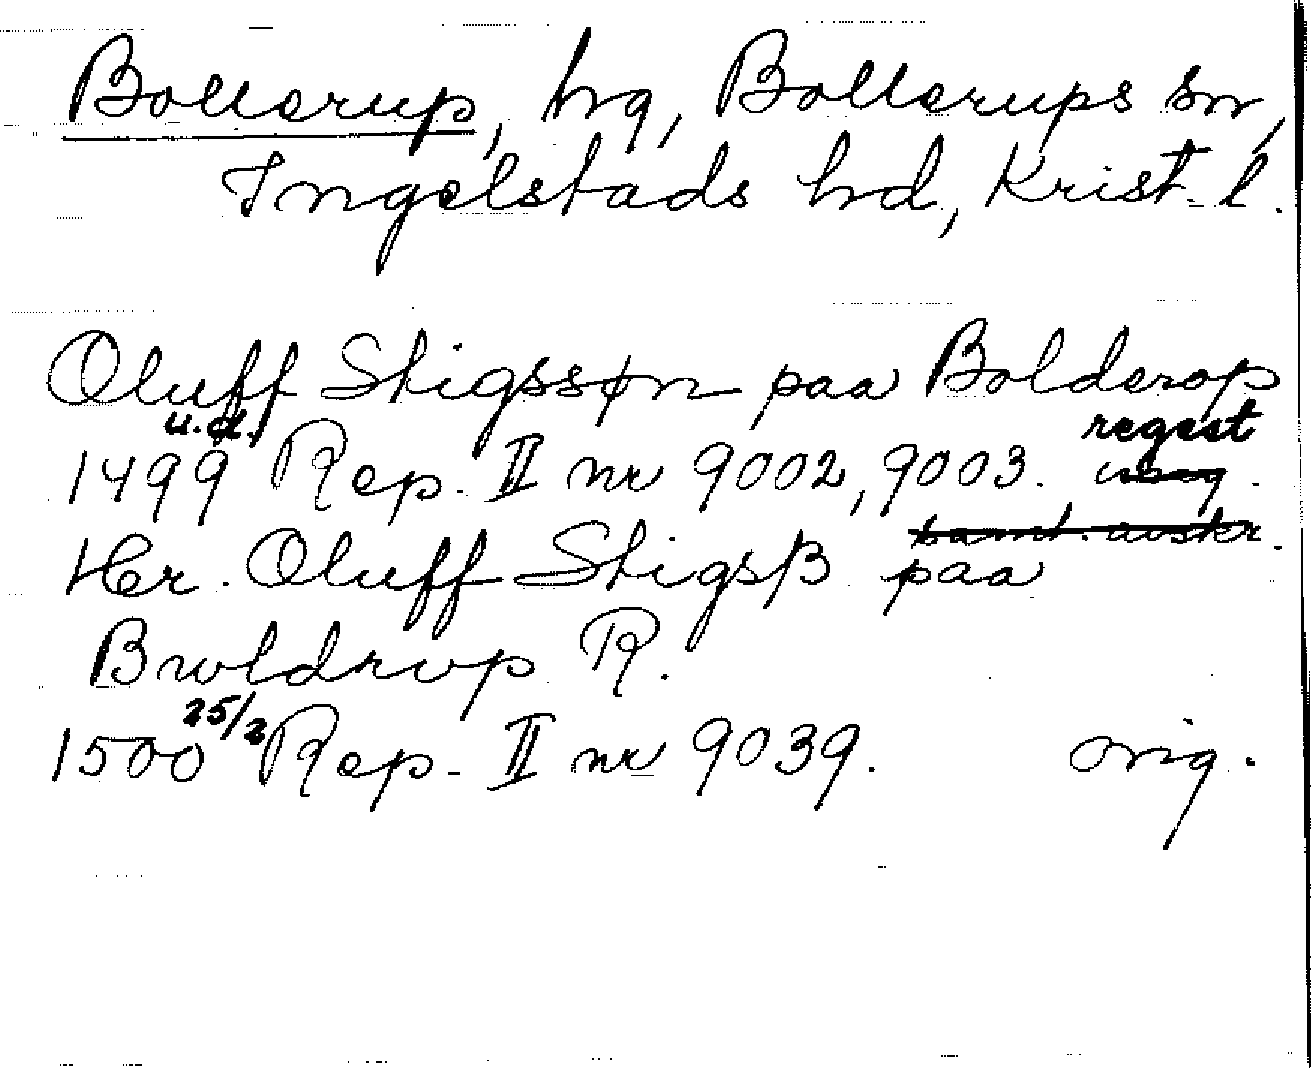 Bollerup, hg, Bollerups sn,
Ingelstads hd, Krist. l.
Oluff Stigssøn paa Bolderop
1499 u.d. Rep. II nr 9002, 9003. regest
samt. avskr.
Her Oluff Stigsß paa
Bwldrvp R.
1500 25/2 Rep. II nr 9039. orig.